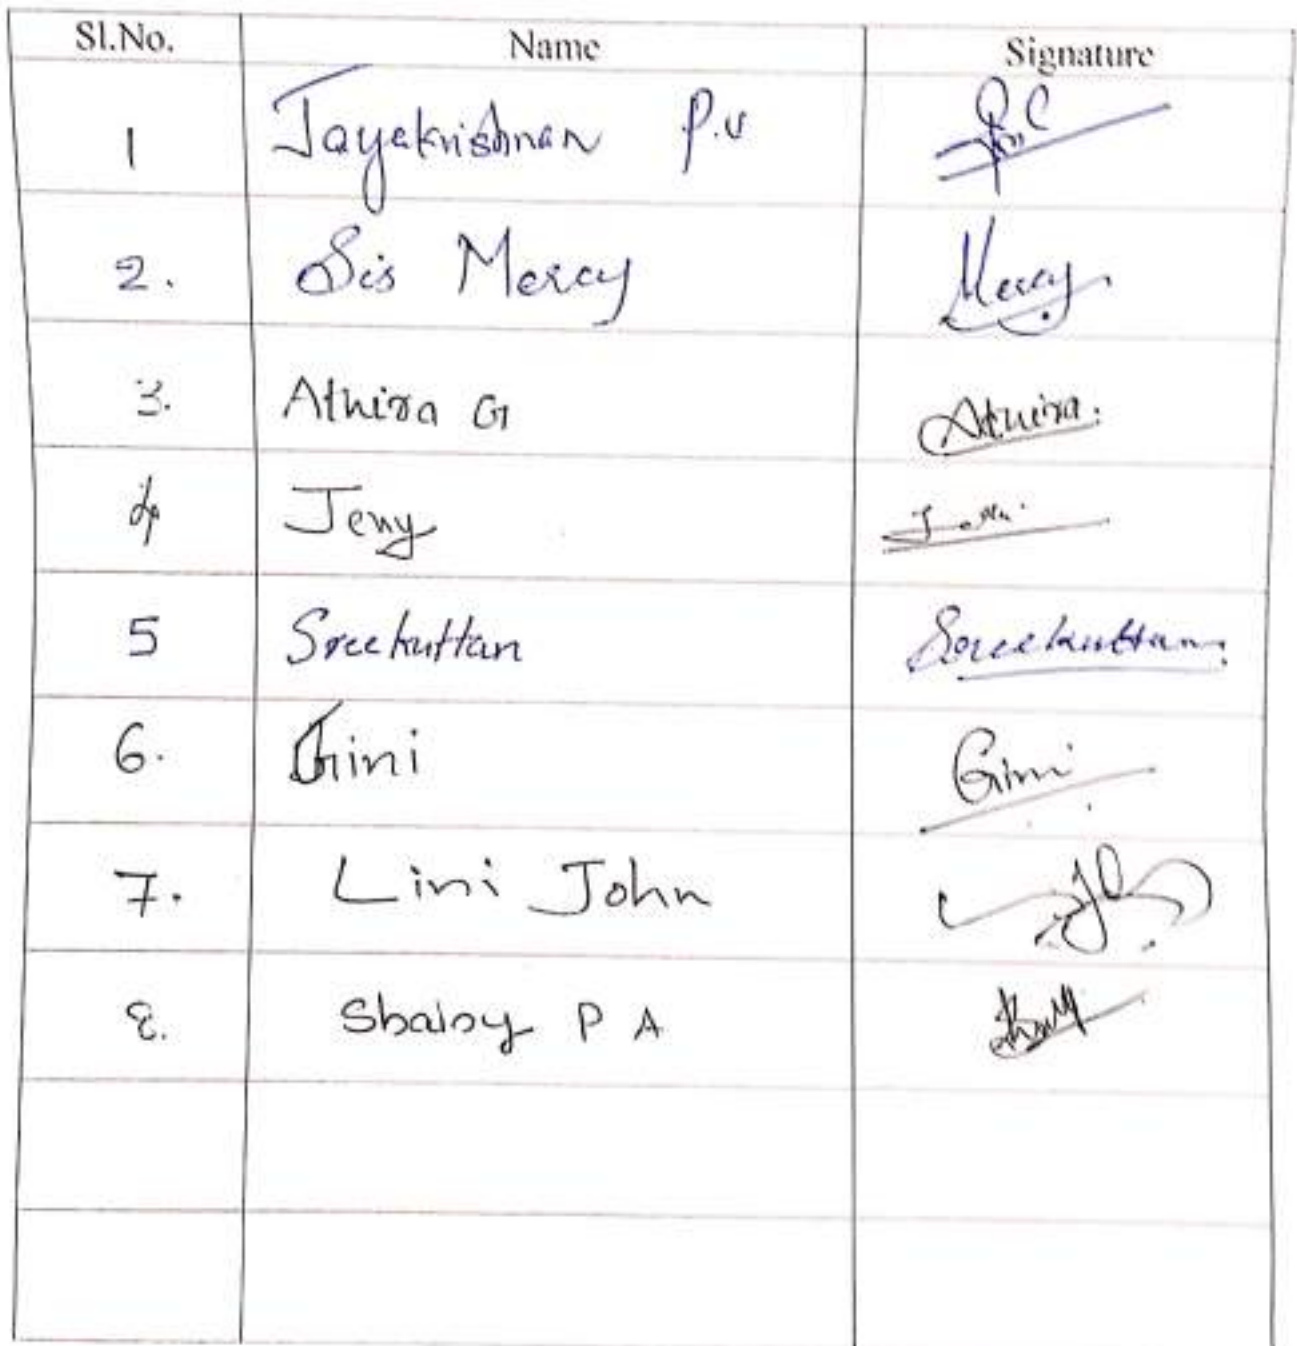 Sl.No. Name Signature
1 Jayakrishnan P.V
2. Sis Mercy Mercy
3. Athira G Athira.
4 Jeny
5 Sreekuttan Sreekuttan
6. Gini Gini
7. Lini John
8. Shaiby P A